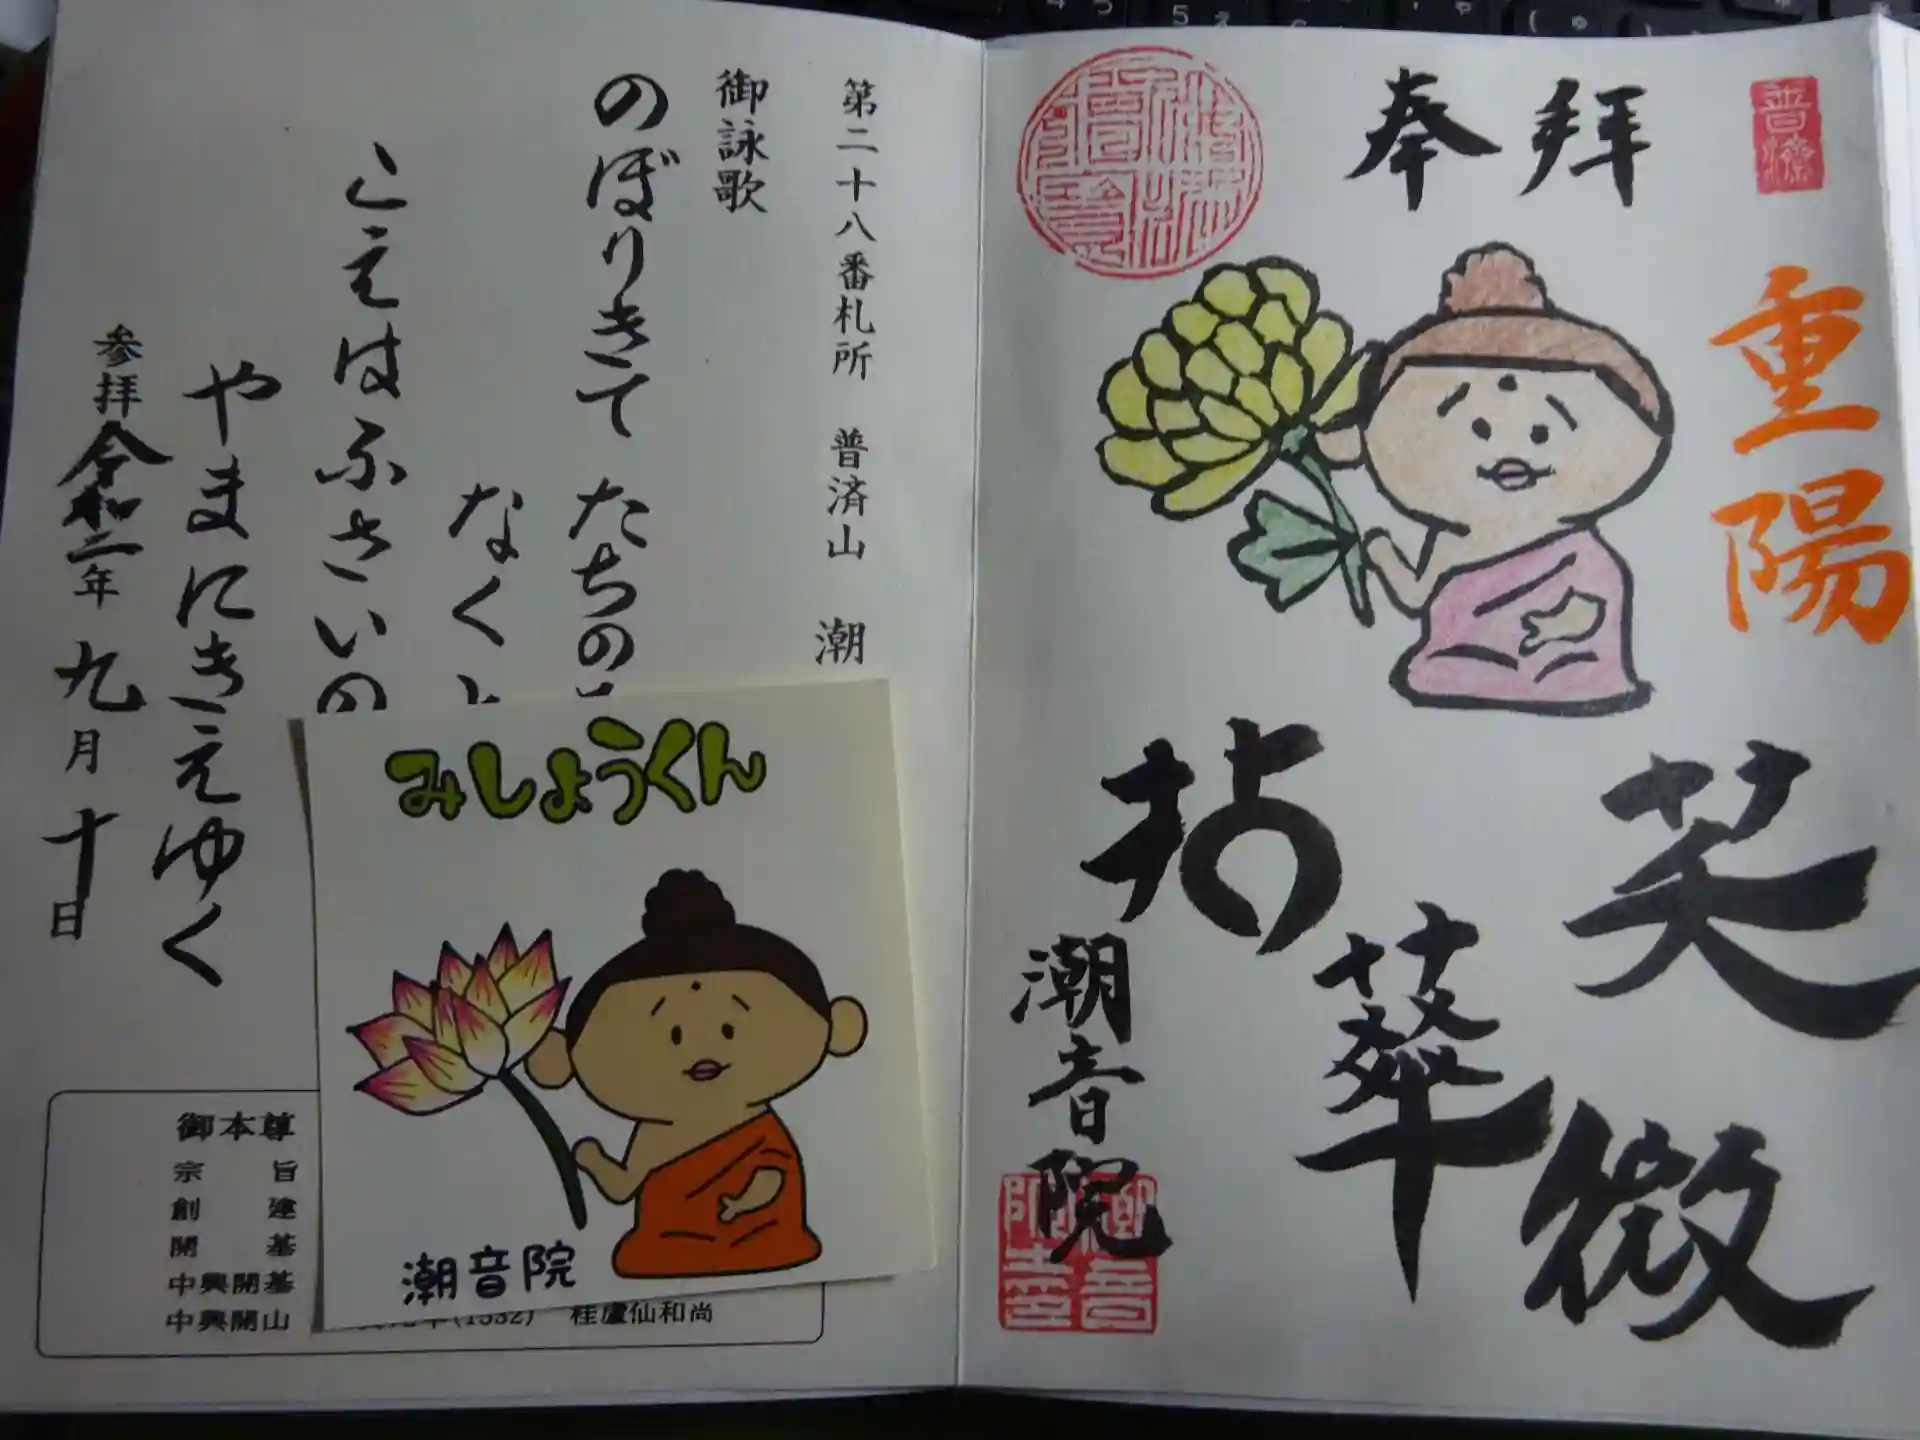 奉拝
普済
重陽
拈華
微笑
潮音院
第二十八番札所 普済山 潮
御詠歌
のぼりきて たちの
なくと
こえはふさいの
やまにきえゆく
参拝 令和二年 九月 十日
みしょうくん
潮音院
御本尊
宗旨
創建
開基
中興開基
中興開山
(1532) 桂盧仙和尚